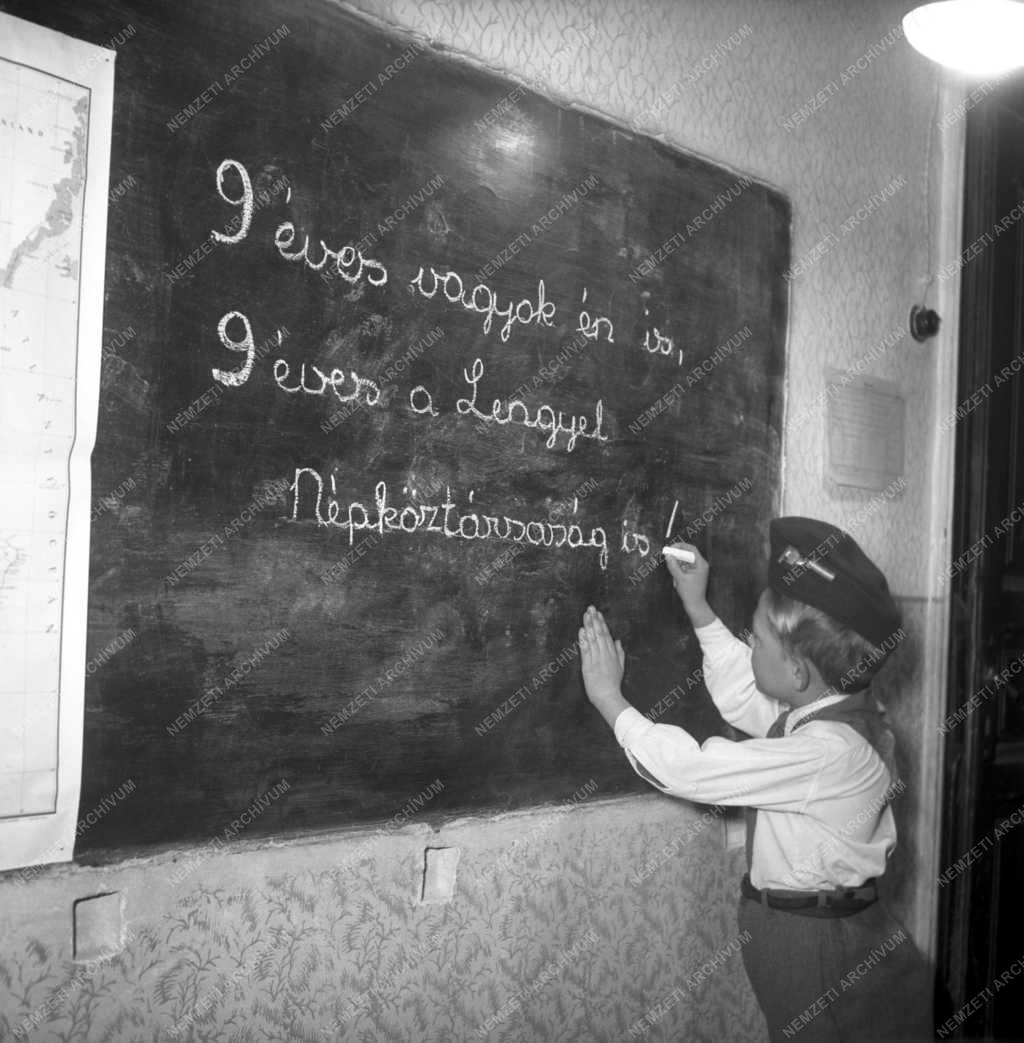 9 éves vagyok én is,
9 éves a Lengyel
Népköztársaság is!
NEMZETI ARCHÍVUM